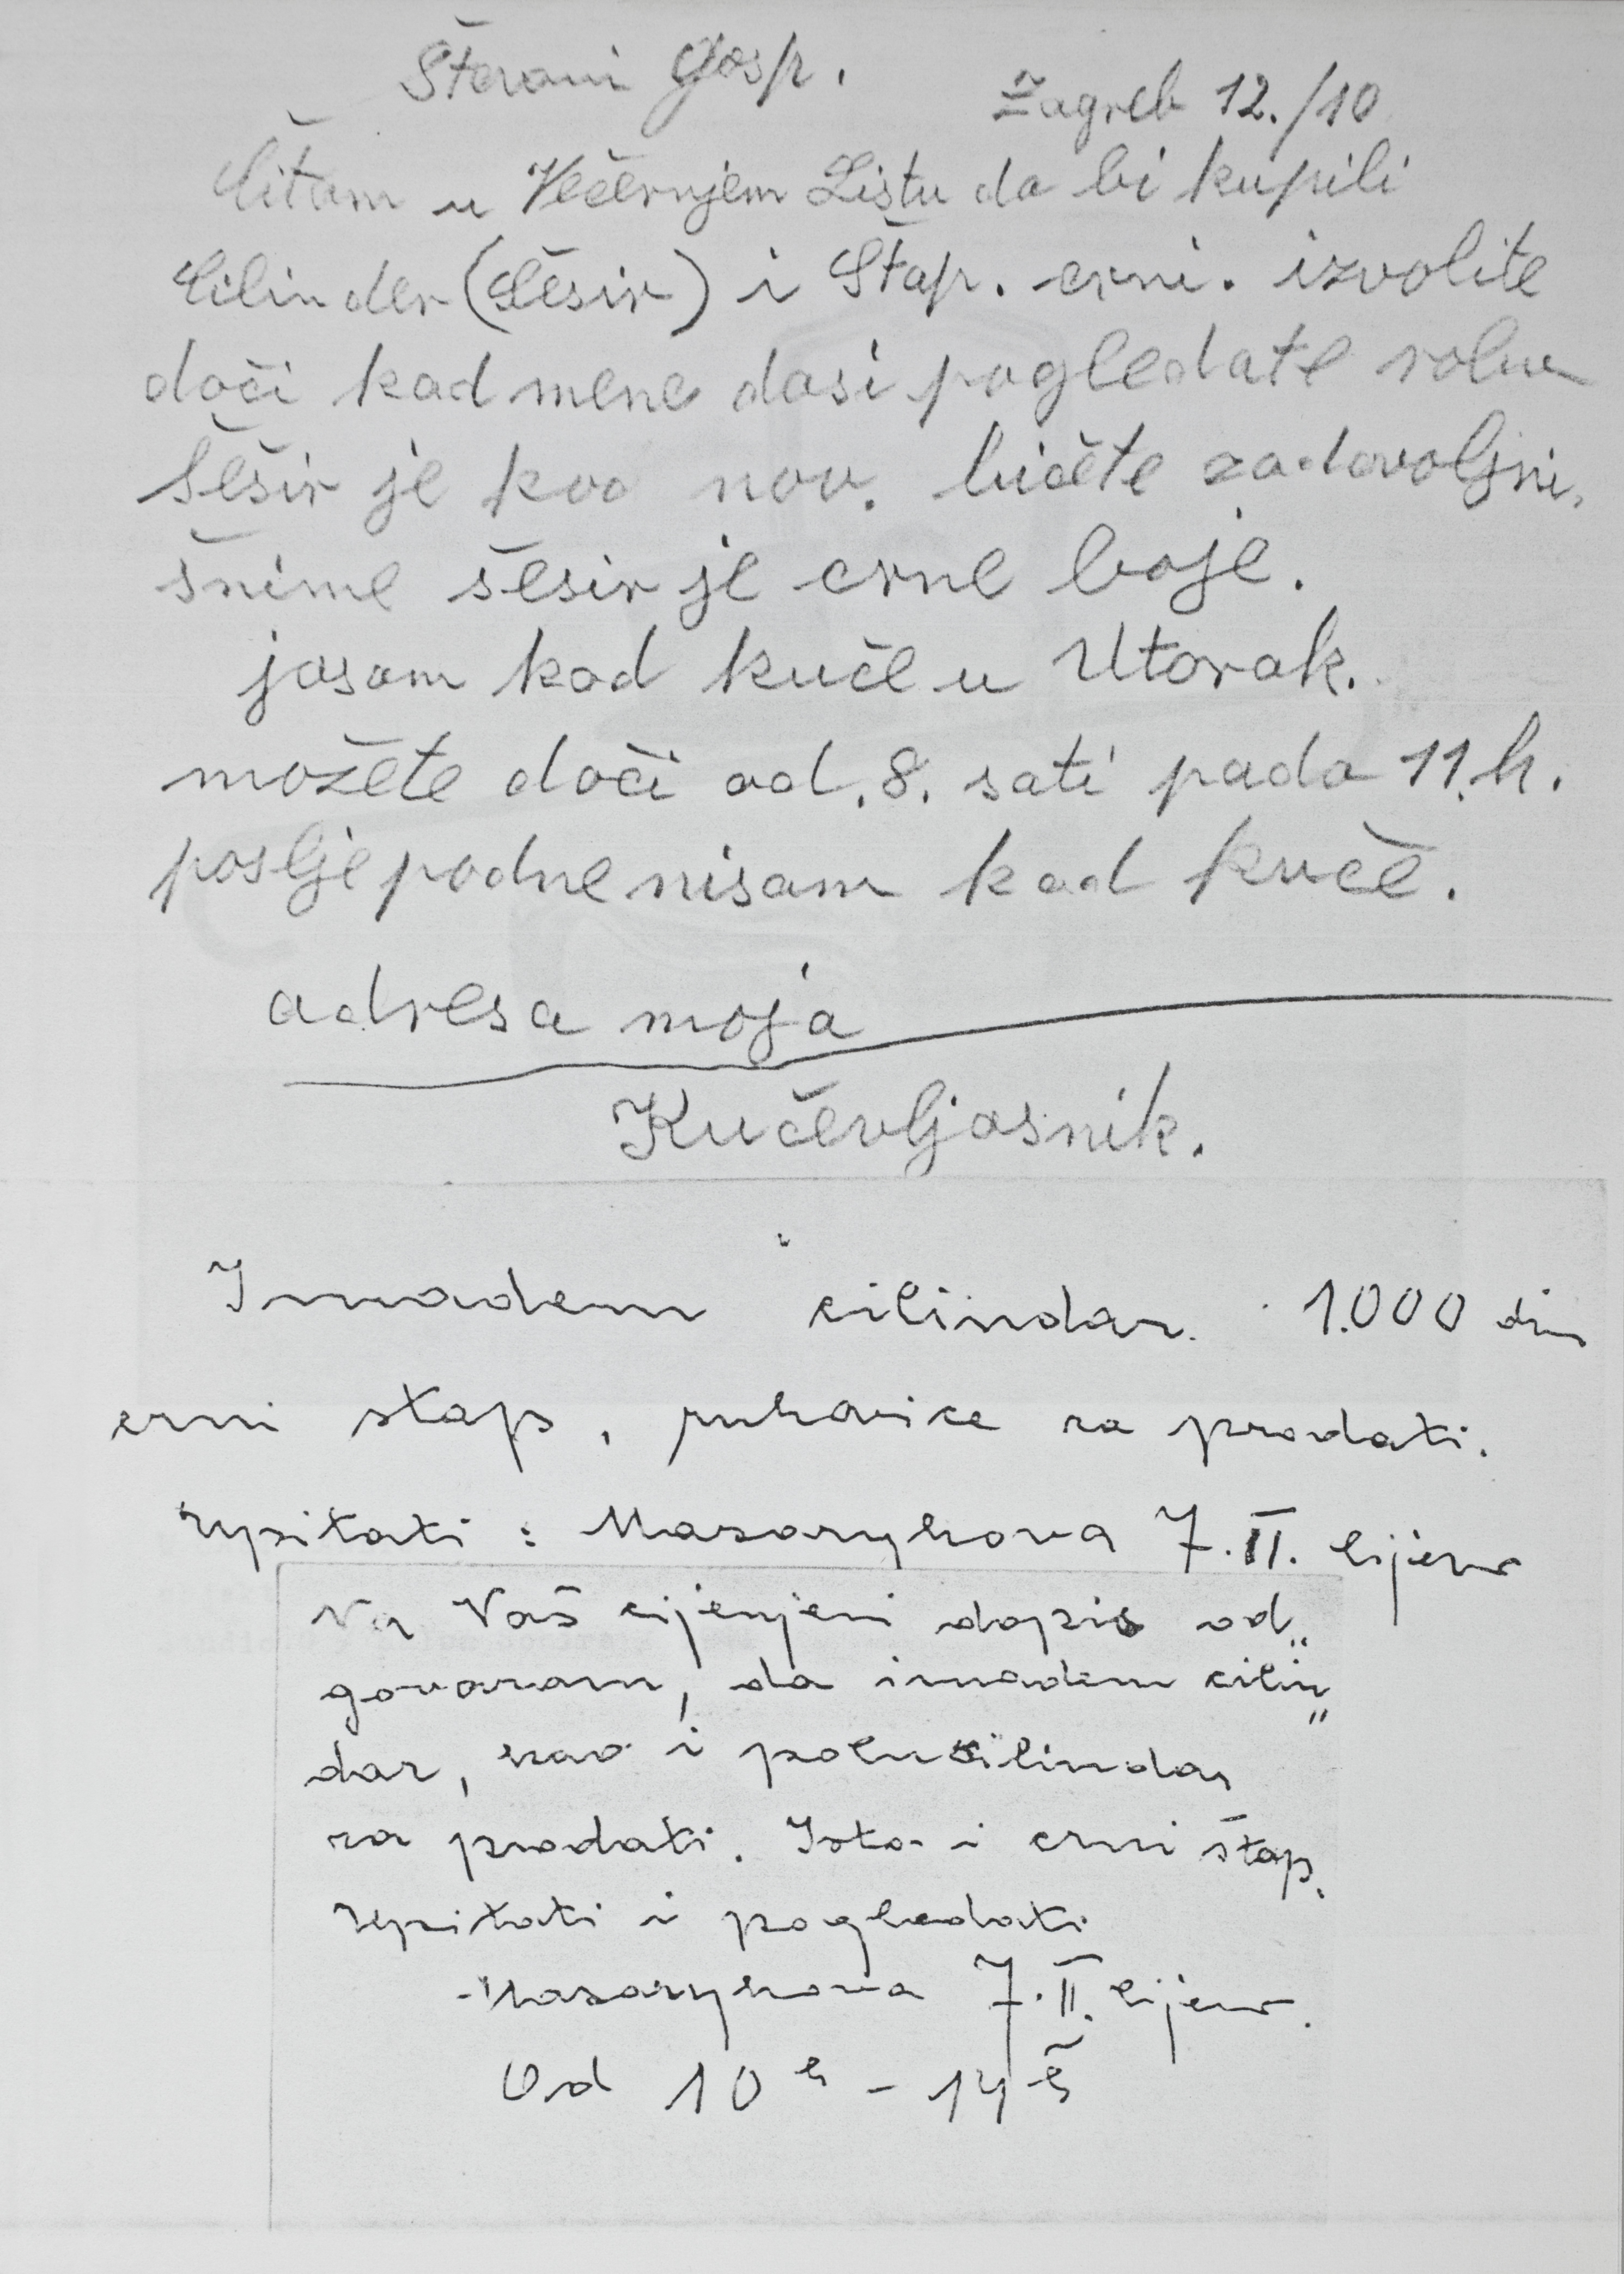 Štovani Gosp.
Zagreb 12./10
Čitam u Večernjem Listu da bi kupili
Cilinder (Šešir) i Štap. crni. izvolite
doči kod mene dasi pogledate robu
šešir je kao nov. bičete zadovoljni.
šnime šesir je crne boje.
jasam kod kuče u Utorak.
možete doči od. 8. sati pada 11.h.
poslje podne nisam kod kuče.
adresa moja
Kučevljasnik.
Imadem cilindar. 1.000 din
crni stap, rukavice za prodati.
Upitati : Masarykova 7. II. lijevo
Na Vaš cijenjeni dopis od„
govaram, da imadem cilin„
dar, kao i polucilindar
za prodati. Isto i crni štap.
Upitati i pogledati
Masarykova 7. II. lijevo.
Od 10 h - 14 h